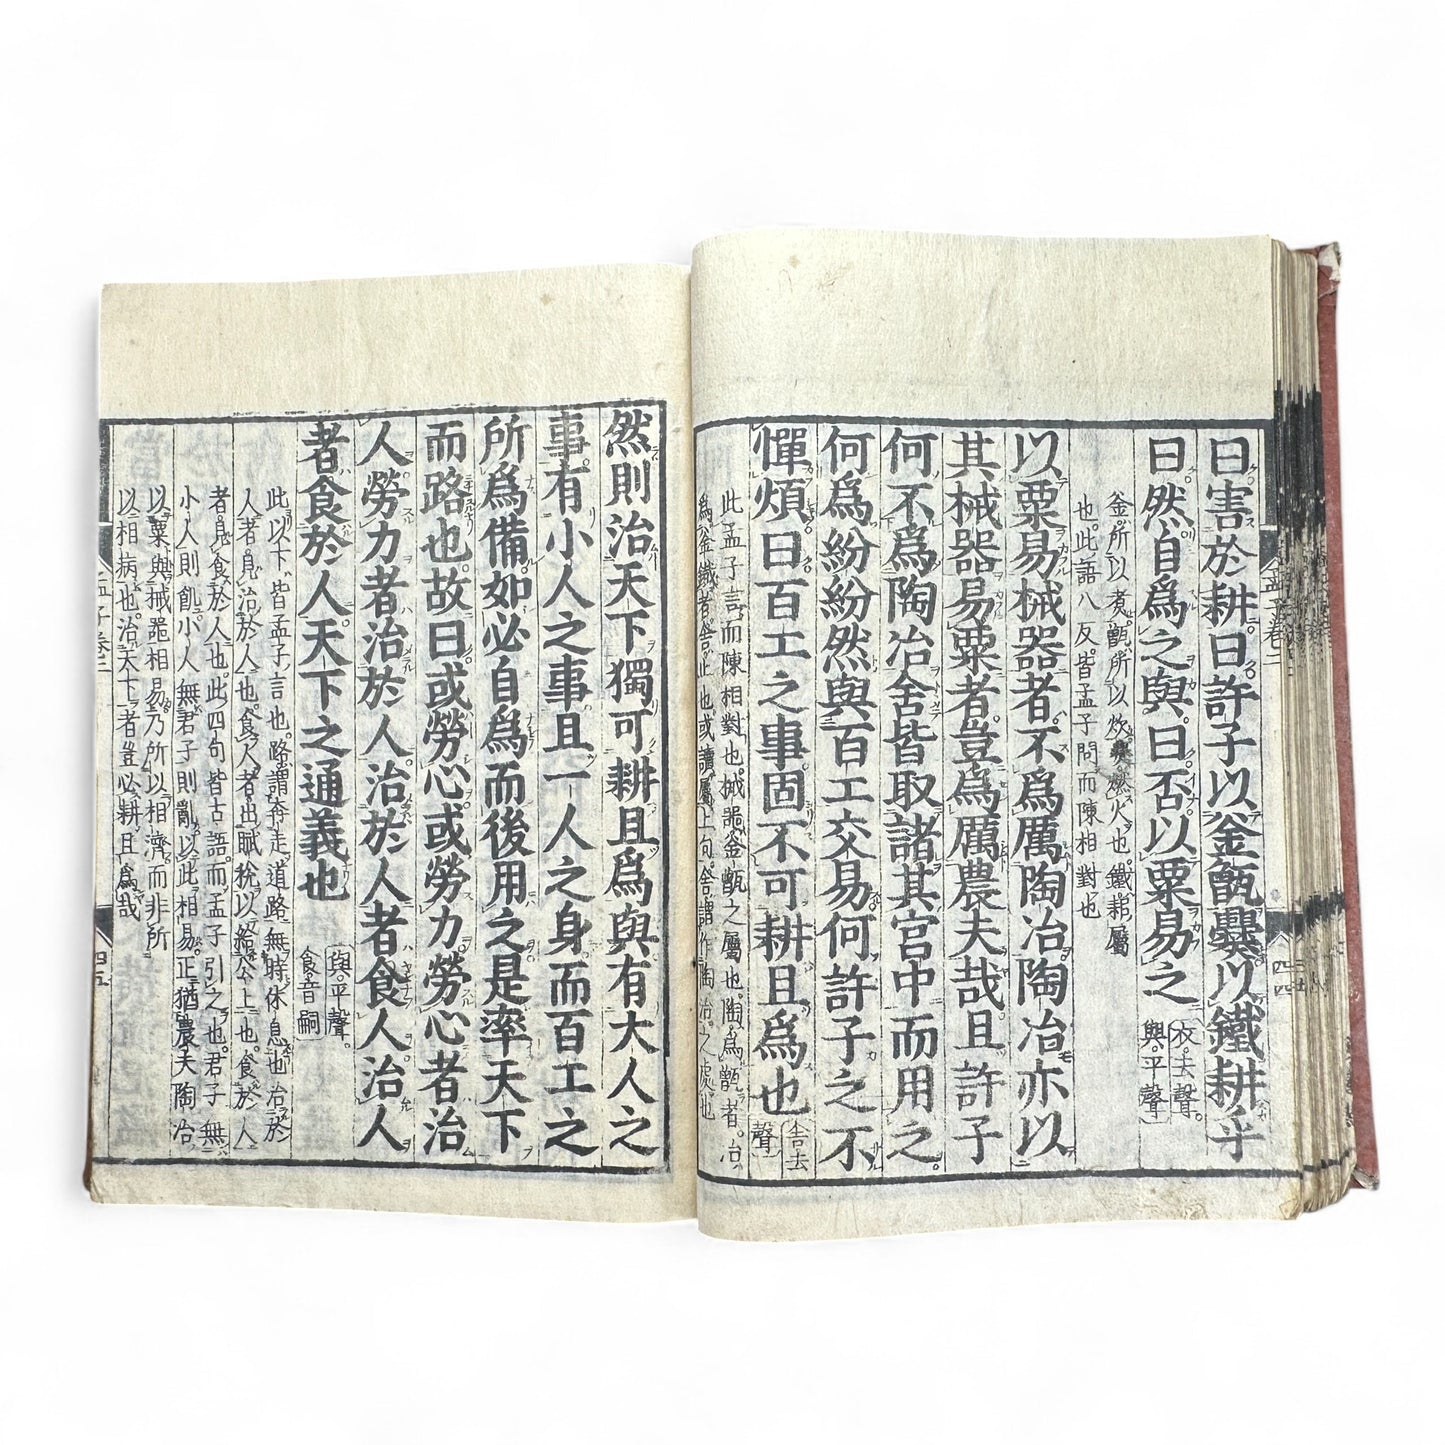 曰害於耕曰許子以釜甑爨以鐵耕乎
曰然自爲之與曰否以粟易之
衣去聲
與平聲
釜所以煮甑所以炊爨燃火也鐵耜屬
也此語八反皆孟子問而陳相對也
以粟易械器者不爲厲陶冶陶冶亦以
其械器易粟者豈爲厲農夫哉且許子
何不爲陶冶舍皆取諸其宮中而用之
何爲紛紛然與百工交易何許子之不
憚煩曰百工之事固不可耕且爲也
舍去
聲
此孟子言而陳相對也械器釜甑之屬也陶爲甑者冶
爲釜鐵者舍止也或讀屬上句舍謂作陶冶之處也
孟子卷三
四四
然則治天下獨可耕且爲與有大人之
事有小人之事且一人之身而百工之
所爲備如必自爲而後用之是率天下
而路也故曰或勞心或勞力勞心者治
人勞力者治於人治於人者食人治人
者食於人天下之通義也
與平聲
食音嗣
此以下皆孟子言也路謂奔走道路無時休息也治於
人者見治於人也食人者出賦稅以給公上也食於人
者見食於人也此四句皆古語而孟子引之也君子無
小人則飢小人無君子則亂以此相易正猶農夫陶冶
以粟與械器相易乃所以相濟而非所
以相病也治天下者豈必耕且爲哉
孟子卷三
四五